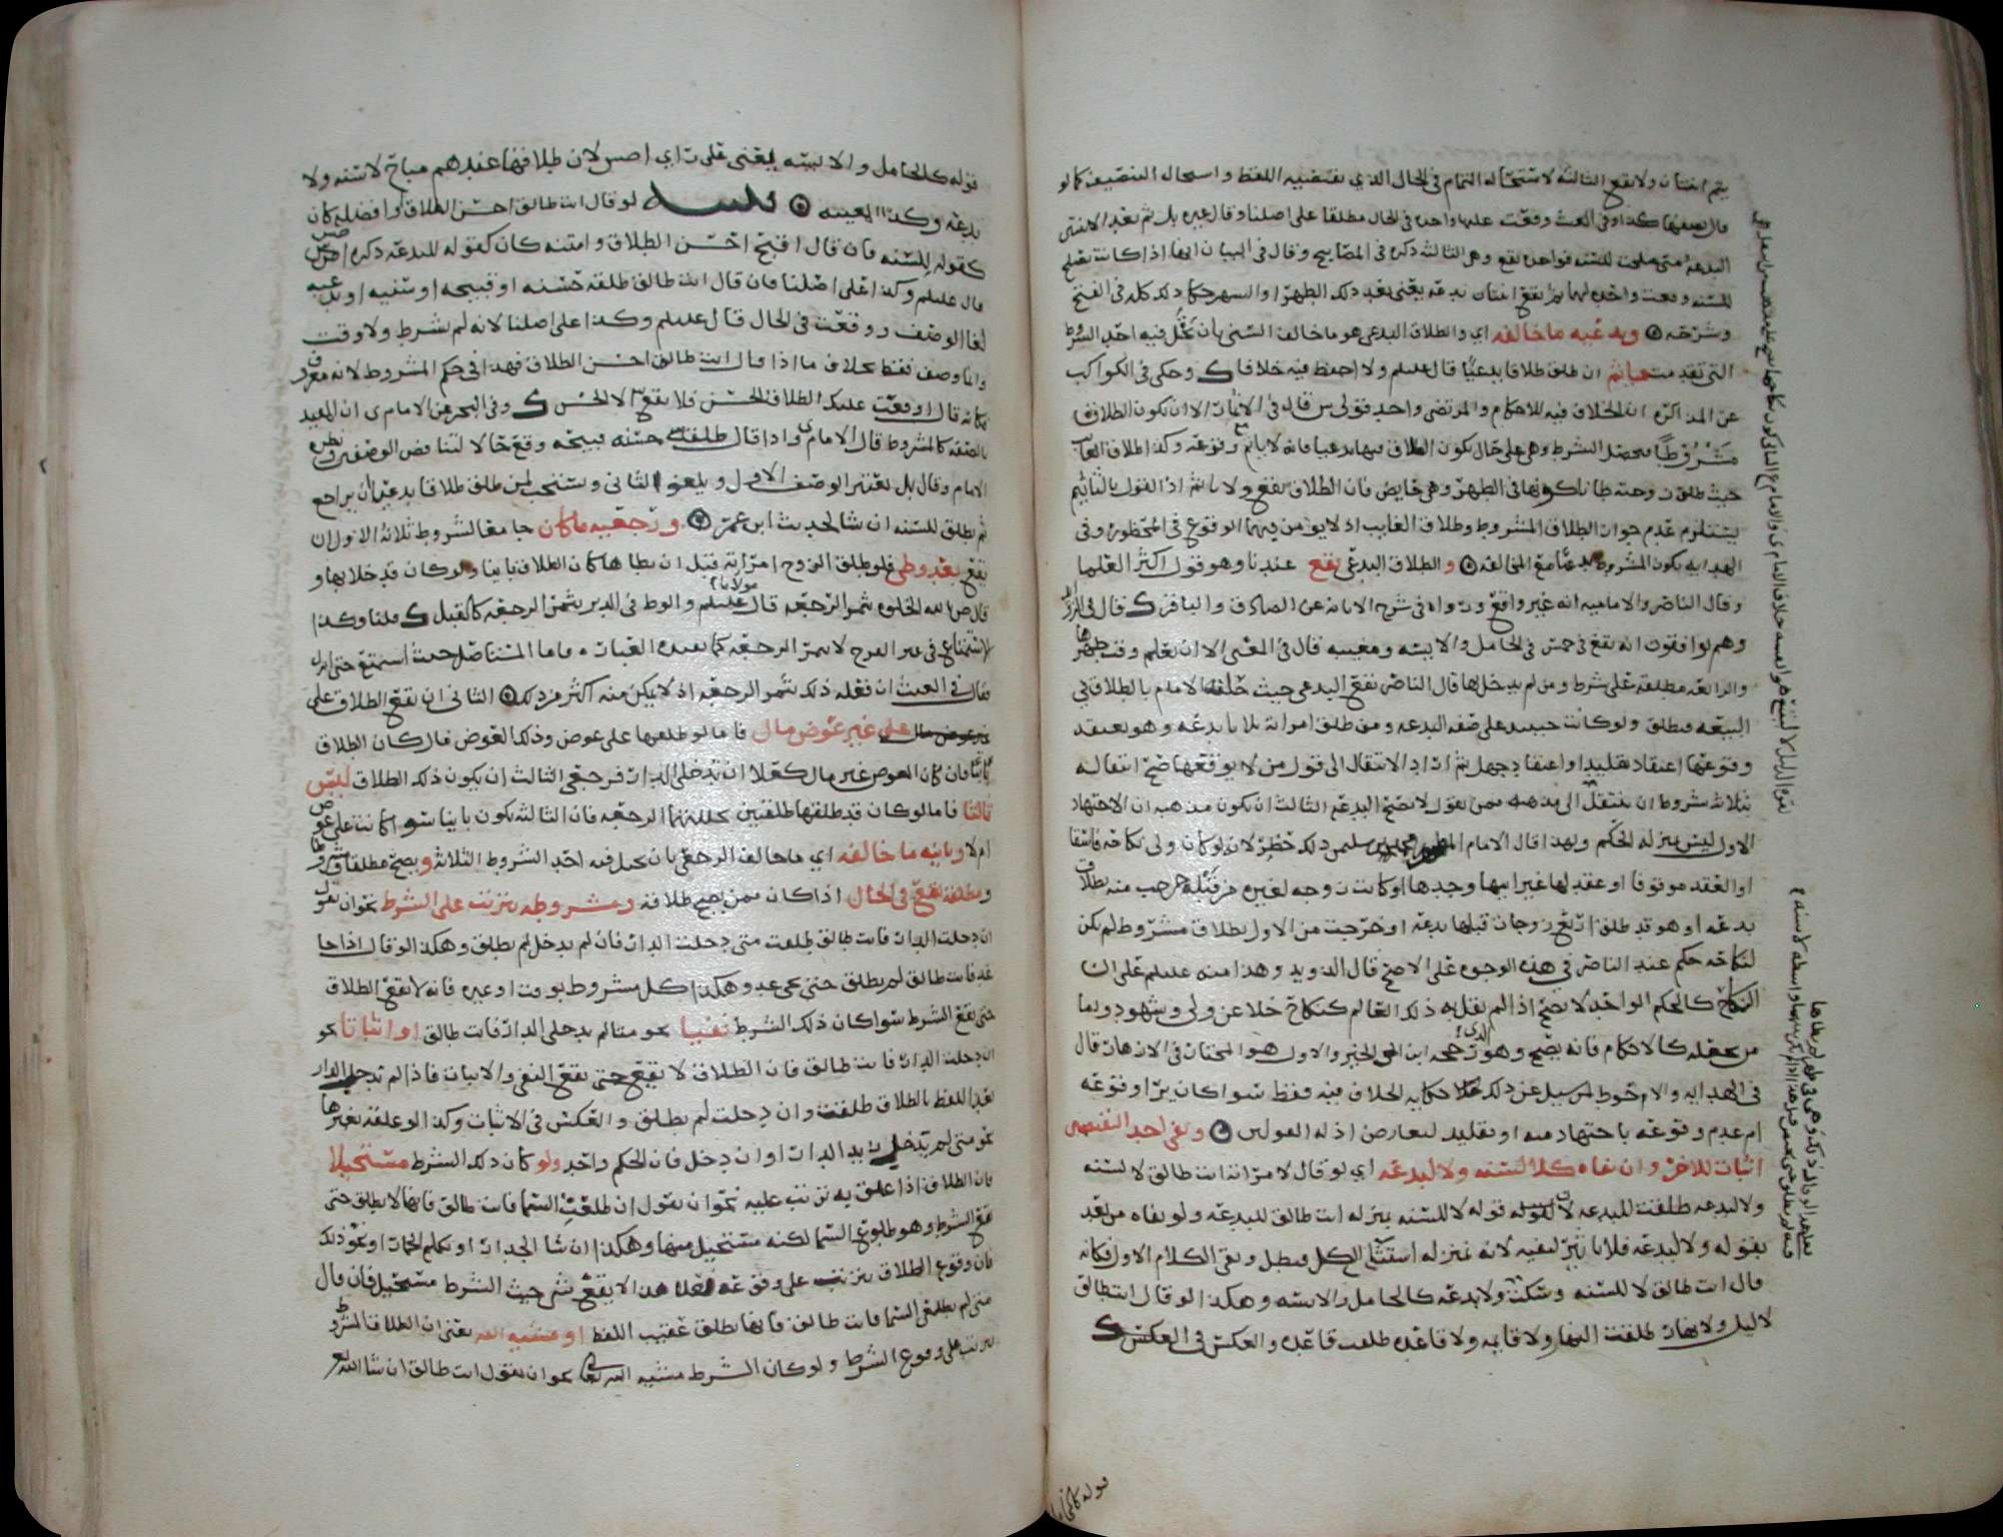 يتم اثنتان ولا تقع الثالثة لاستحاله التمام في الحال الذي يقتضيه اللفظ واستحاله التنصيف كما لو
قال بعضها كذا وفي البعث وقعت عليها واحده في الحال مطلقا على اصلنا وقال غيره بل ثم بعد الاثنتين
البدعة متى صلحت للسنه فواحده تقع وهي الثالثه ذكره في المصابيح وقال في البيان انها اذا كانت تصلح
للسنه وقعت واحده لها ثم تقع اثنتان بدعه يعني بعد ذلك الطهر او الشهر حكا ذلك كله في الفتح
وشرحه وبدعيه ما خالفه اي والطلاق البدعي هو ما خالف السني بان يختل فيه احد الشروط
التي تقدمت فيأثم ان طلق طلاقا بدعيا قال عليلم ولا احفظ فيه خلافا ك وحكى في الكواكب
عن المذاكره ان الخلاف فيه للاحكام والمرتضى واحد قولي س قال في الاثبات الا ان يكون الطلاق
مشروطا فحصل الشرط وهي على حال يكون الطلاق فيها بدعيا فانه لا ياثم وقوعه وكذا طلاق الغايب
حيث طلق زوجته ظانا كونها في الطهر وهي حايض فان الطلاق يقع ولا ياثم اذ القول بالتأثيم
يستلزم عدم جواز الطلاق المشروط وطلاق الغايب اذ لا يومن فيهما الوقوع في المحظور وفي
الهدايه يكون المشروط بدعيا مع المخالفه والطلاق البدعي يقع عندنا وهو قول اكثر العلما
وقال الناصر والاماميه انه غير واقع ورواه في شرح الابانه عن الصادق والباقر ك قال في الزوايد
وهم يوافقون انه يقع في خمس في الحامل والايسه ومغيبه قال في المغنى الا ان يعلم وقت طهرها
والرابعه مطلقه على شرط ومن لم يدخل بها قال الناصر يقع البدعي حيث حلفه الامام بالطلاق في
البيعه فيطلق ولو كانت حينئذ على صفه البدعه ومن طلق امراته ثلاثا بدعه وهو يعتقد
وقوعها اعتقاد تقليد او اعتقاد جهل ثم اراد الانتقال الى قول من لا يوقعها صح انتقاله
بثلاثه شروط ان ينتقل الى مذهب من يقول لا تصح البدعه الثالث ان يكون مذهبه ان الاجتهاد
الاول ليس بمنزله الحكم ولهذا قال الامام المطهر محمد بن سليمن ذلك خطر لانه لو كان ولي نكاحه فاسقا
او العقد موقوفا او عقد لها غير ابيها وجدها او كانت زوجه لغيره من قبله خرجت منه بطلاق
بدعه او هو قد طلق اربع زوجات قبلها بدعه او خرجت من الاول بطلاق مشروط لم يكن
لنكاحه حكم عند الناصر في هذه الوجوه على الاصح قال الدويد وهذا منه عليلم على ان
النكاح كالحكم الواحد لا يصح اذا لم يقل به ذلك العالم كنكاح خلا عن ولي وشهود واما
من يجعله كالاحكام فانه يصح وهو الذي رجحه ابن ابي الخير والاول هو المختار في الازهار قال
في الهدايه والاحوط لمن سيل عن ذلك حكايه الخلاف فيه فقط سوا كان يرا وقوعه
ام عدم وقوعه باجتهاد منه او تقليد لتعارض ادله القولين ونفي احد النقيضين
اثبات للاخر وان نفاه كلا لسنه ولا لبدعه اي لو قال لامراته انت طالق لا لسنه
ولا لبدعه طلقت للبدعه لان قوله لا للسنه بمنزله انت طالق للبدعه ولو نفاه من بعد
بقوله ولا لبدعه فلا تاثير لنفيه لانه بمنزله استثنا الكل فبطل وبقي الكلام الاول فكانه
قال انت طالق لا للسنه وسكت ولا بدعه كالحامل والايسه وهكذا لو قال انت طالق
لا ليل ولا نهار طلقت النهار ولا قايمه ولا قاعده طلقت قاعده والعكس في العكس ك
قوله كالحامل
قوله كالحامل والايسه يعني على راي اصش لان طلاقها عندهم مباح لا سنه ولا
بدعه وكذا المغيبه تنبيه لو قال انت طالق احسن الطلاق او افضله كان
كقوله للسنه فان قال اقبح احسن الطلاق وامتنه كان كقوله للبدعه ذكره اصش
قال عليلم وكذا على اصلنا فان قال انت طالق طلقه حسنه او قبيحه او سنيه او بدعيه
لغا الوصف ووقعت في الحال قال عليلم وكذا على اصلنا لانه لم يشرط ولا وقت
وانما وصف فقط بخلاف ما اذا قال انت طالق احسن الطلاق فهذا في حكم المشروط لانه معرف
فكانه قال اوقعت عليك الطلاق الحسن فلا يقع الا لحسن ك وفي البحر عن الامام ى ان المقيد
بالصفه كالمشروط قال الامام ى واذا قال طلقتك حسنه قبيحه وقع حالا لتناقض الوصفين نظره
الامام وقال بل يعتبر الوصف الاول ويلغو الثاني ويستحب لمن طلق طلاقا بدعيا ان يراجع
ثم يطلق للسنه ان شا لحديث ابن عمر ورجعيه ما كان جامعا لشروط ثلاثه الاول ان
يقع بعد وطي فلو طلق الزوج امراته قبل ان يطاها كان الطلاق باينا ولو كان قد خلا بها و
قال ص بالله الخلوه تثمر الرجعه قال مولانا عليلم والوطي في الدبر يثمر الرجعه كالقبل ك قلنا وكذا
الاستمتاع في غير الفرج لا يثمر الرجعه كما تفيده العباره فاما المستاصل حيث استمتع حتى انزل
فقال في الغيث ان فعله ذلك يثمر الرجعه اذ لا يمكن منه اكثر من ذلك الثاني ان تقع الطلاق على
على غير عوض مال فاما لو طلقها على عوض وذلك العوض مال كان الطلاق
باينا فان كان العوض غير مال كعلى ان تدخلي الدار فرجعي الثالث ان يكون ذلك الطلاق ليس
ثالثا فاما لو كان قد طلقها طلقتين تخللتهما الرجعه فان الثالثه تكون باينا سوا كانت على عوض
ام لا وباينه ما خالفه اي ما خالف الرجعي بان يختل فيه احد الشروط الثلاثه ويصح مطلقا ومشروطا
ومطلقه تقع في الحال اذا كان ممن يصح طلاقه ومشروطه يترتب على الشرط نحو ان تقول
ان دخلت الدار فانت طالق طلقت متى دخلت الدار فان لم تدخل لم يطلق وهكذا لو قال اذا جا
غد فانت طالق لم يطلق حتى يجي غد وهكذا كل مشروط بوقت او غيره فانه لا يقع الطلاق
حتى يقع الشرط سوا كان ذلك الشرط نفيا نحو متا لم تدخلي الدار فانت طالق او اثباتا نحو
ان دخلت الدار فانت طالق فان الطلاق لا يقع حتى يقع النفي والاثبات فاذا لم تدخل الدار
بعد اللفظ بالطلاق طلقت وان دخلت لم يطلق والعكس في الاثبات وكذا لو علقه بغيرها
نحو متى لم يدخل زيد الدار او ان دخل فان الحكم واحد ولو كان ذلك الشرط مستحيلا
فان الطلاق اذا علق به ترتب عليه نحو ان تقول ان طلعت السما فانت طالق فانها لا يطلق حتى
يقع الشرط وهو طلوع السما لكنه مستحيل منها وهكذا ان شا الجدار او تكلم الحمار او نحو ذلك
فان وقوع الطلاق يترتب على وقوعه فعلى هذا لا يقع شي حيث الشرط مستحيل فان قال
متى لم يطلعي السما فانت طالق فانها تطلق عقيب اللفظ او مشيه الله يعني ان الطلاق المشروط
يترتب على وقوع الشرط ولو كان الشرط مشيه الله تعالى نحو ان تقول انت طالق ان شا الله تعالى